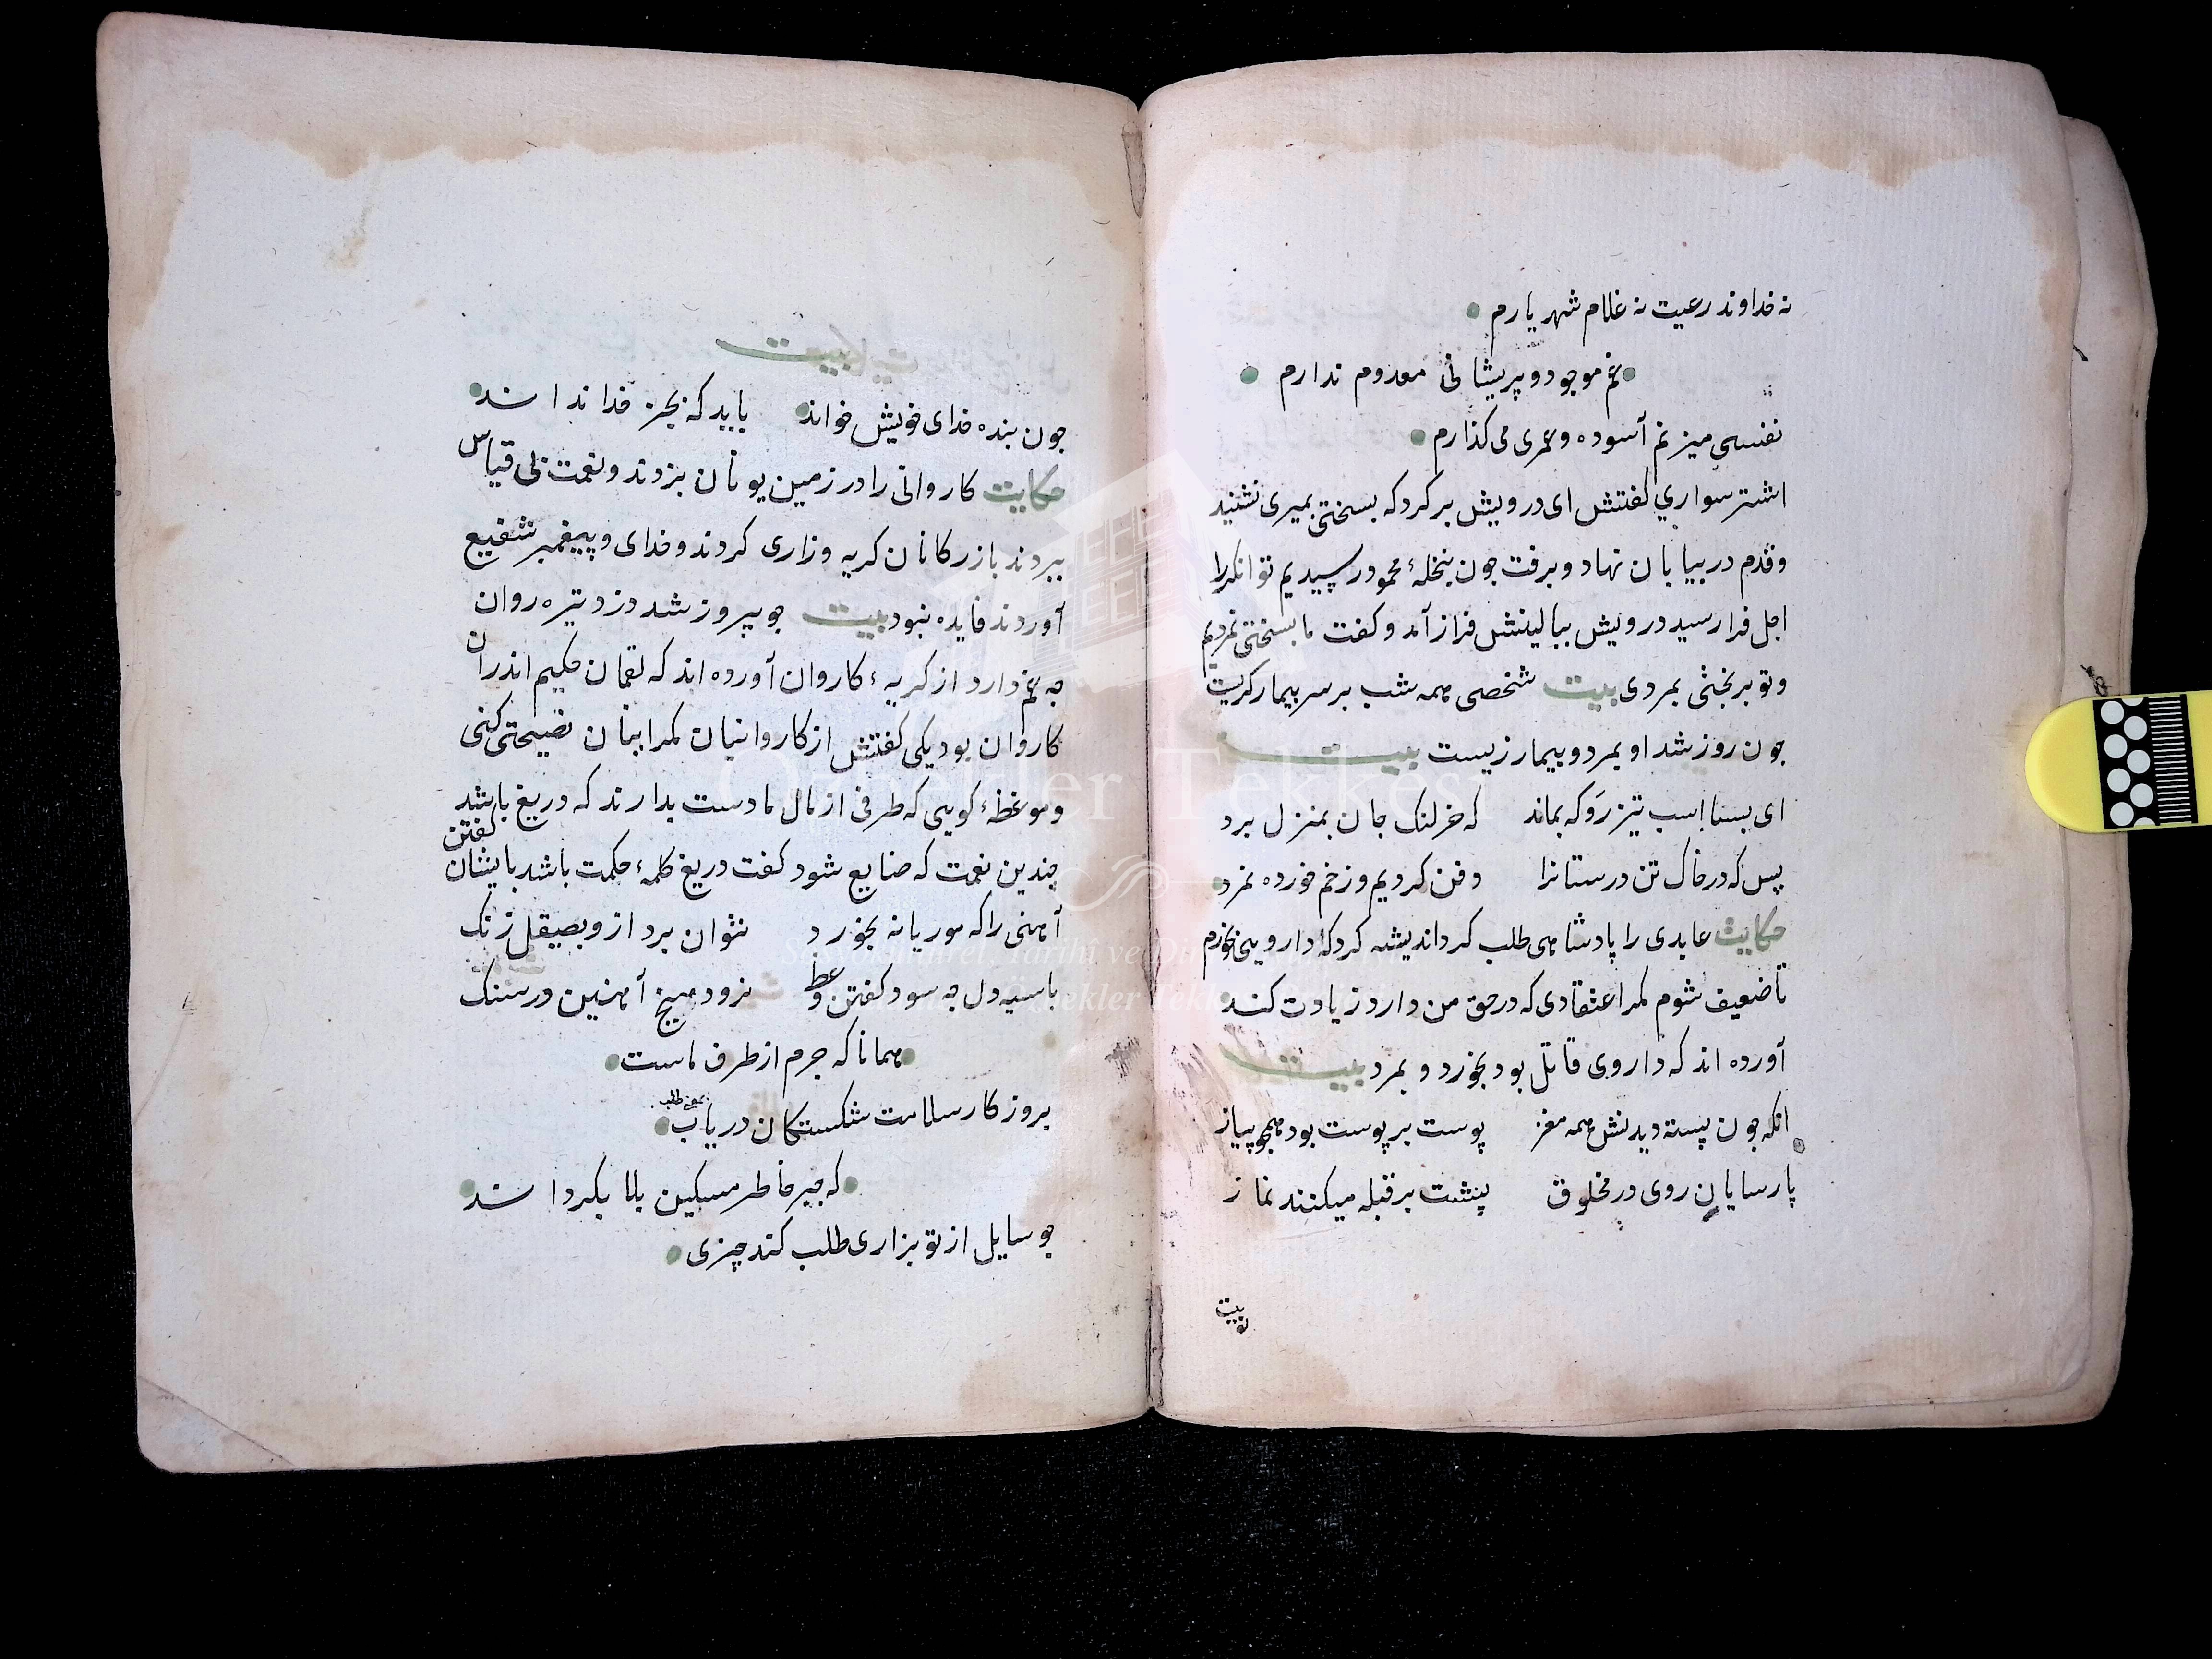 نه خداوند رعیت نه غلام شهریارم
غم موجود و پریشانی معدوم ندارم
نفسی میزنم آسوده و عمری می کذارم
اشتر سواری کفتش ای درویش برکرد که بسختی بمیری نشنید
و قدم در بیابان نهاد و برفت جون بنخلهٔ محمود رسیدیم توانکرا
اجل فرا رسید درویش ببالینش فراز آمد و کفت ما بسختی نمردیم
و تو بر بختی بمردی بیت شخصی همه شب بر سر بیمار کریست
جون روز شد او بمرد و بیمار زیست بیت
ای بسا اسب تیز رَو که بماند که خر لنک جان بمنزل برد
پس که در خاک تن درستانرا دفن کردیم و زخم خورده نمرد
حکایت عابدی را پادشاهی طلب کرد اندیشه کرد که دارویی بخورم
تا ضعیف شوم مکر اعتقادی که در حق من دارد زیادت کند
آورده اند که داروی قاتل بود بخورد و بمرد بیت
انکه جون پسته دیدنش همه مغز پوست بر پوست بود همجو پیاز
پارسایان روی در مخلوق پشت بر قبله میکنند نماز
بیت
حکایت بیت
جون بنده خدای خویش خواند باید که بجز خدا نداند
حکایت کاروانی را در زمین یونان بزدند و نعمت بی قیاس
ببردند بازرکانان کریه و زاری کردند و خدای و پیغمبر شفیع
آوردند فایده نبود بیت جو پیروز شد دزد تیره روان
جه غم دارد از کریهٔ کاروان آورده اند که لقمان حکیم اندران
کاروان بود یکی کفتش از کاروانیان مکر اینان نصیحتی کنی
و موعظهٔ کویی که طرفی از مال ما دست بدارند که دریغ باشد
جندین نعمت که ضایع شود کفت دریغ کلمهٔ حکمت باشد بایشان کفتن
آهنی را که موریانه بخورد نتوان برد ازو بصیقل زنک
با سیه دل جه سود کفتن وعظ نرود میخ آهنین در سنک
همانا که جرم از طرف ماست
بروزکار سلامت شکستکان دریاب
که جبر خاطر مسکین بلا بکرداند
جو سایل از تو بزاری طلب کند چیزی
Özbekler Tekkesi